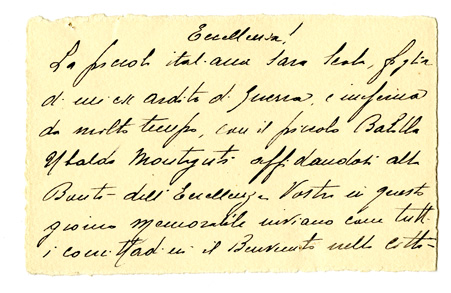 Eccellenza!
La piccola italiana Sara Scala, figlia
di un ex ardito di Guerra, e inferma
da molto tempo, con il piccolo Balilla
Ubaldo affidandosi alla
Bontà dell'Eccellenza Vostra in questo
giorno memorabile inviano come tutti
i cittadini il Benvenuto nella citta-